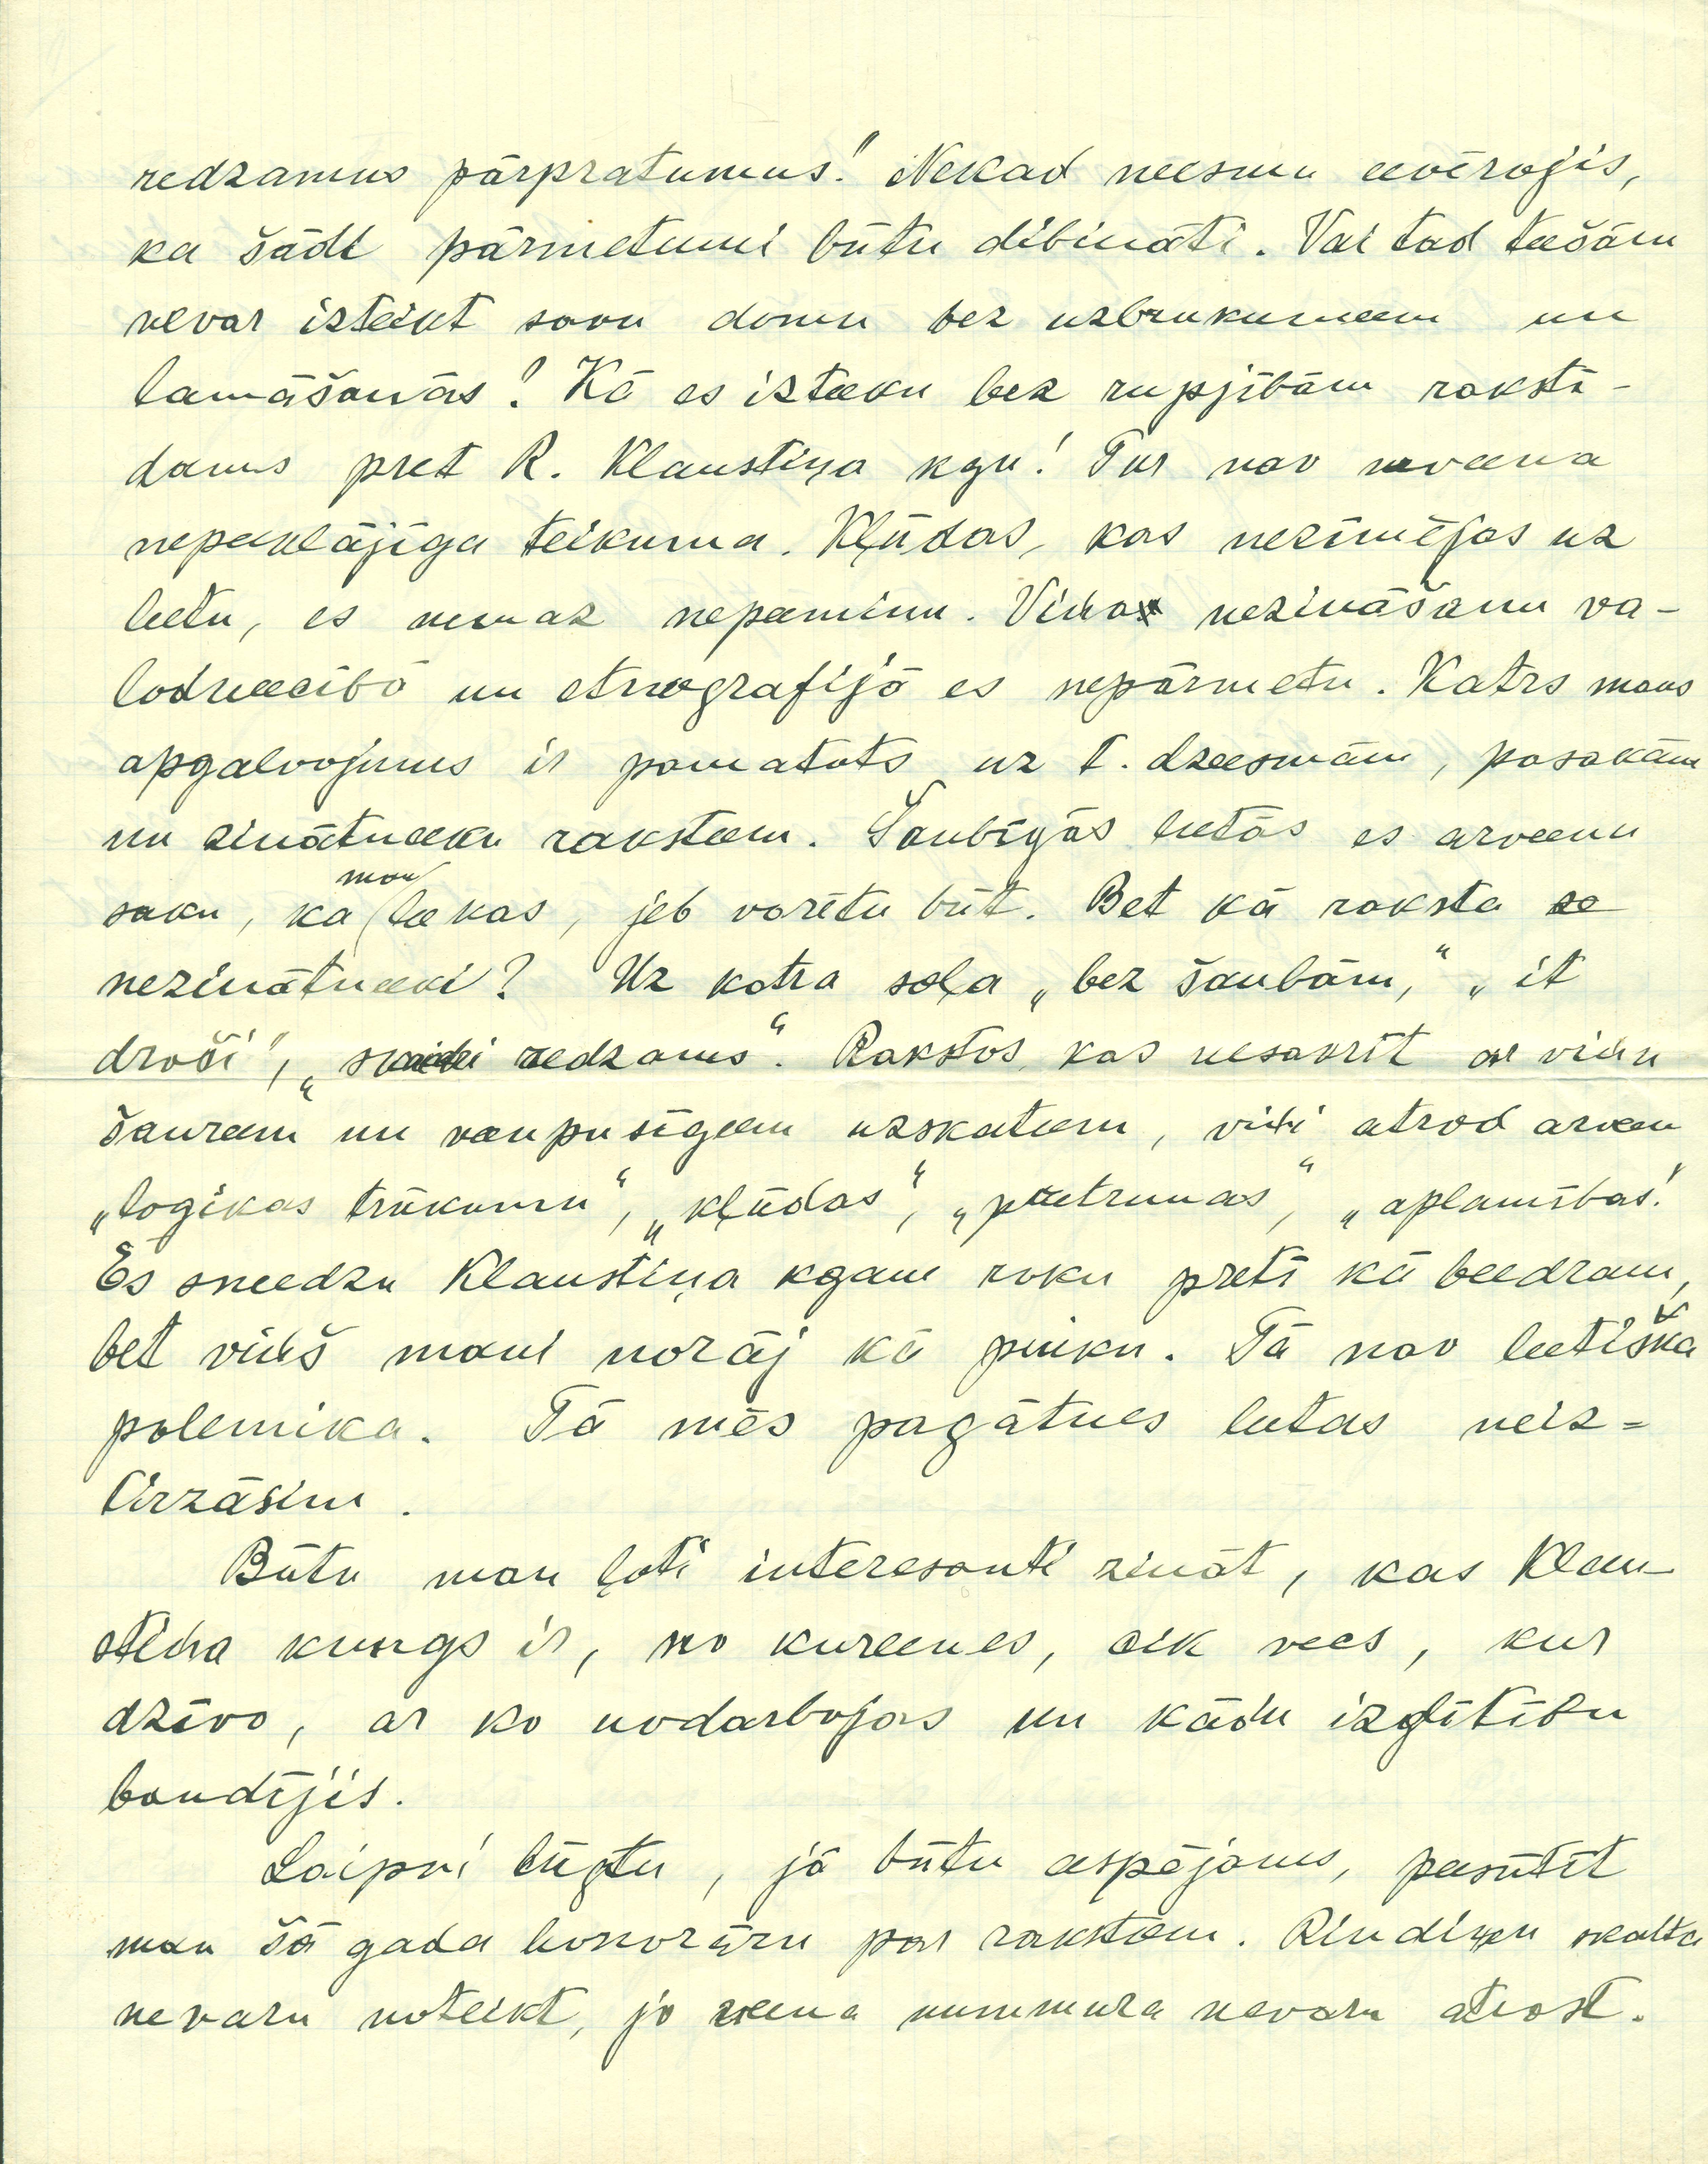 redzamus pārpratumus!" Nekad neesmu eevērojis,
ka šādi pārmetumi būtu dibināti. Vai tad teešām
nevar izteikt savu domu bez uzbrukumeem un
lamāšanās? Kā es izteeku bez rupjībām rakstī-
dams pret R. Klaustiņa kgu! Tur nav neveena
nepeeklājīga teikuma. Kļūdas, kas nezīmējas uz
leetu, es nemaz nepeeminu. Viņa nezināšanu va-
lodneecībā un etnografijā es nepārmetu. Katrs mans
apgalvojums ir pamatots uz t. dzeesmām, pasakām
un zinātneeku raksteem. Šaubīgās leetās es arveenu
saku, ka man leekas, jeb varētu būt. Bet kā raksta
nezinātneeki? Uz katra soļa „bez šaubām," „it
droši", „skaidri redzams". Rakstos, kas nesakrīt ar viņu
šaureem un veenpusīgeem uzskateem, viņi atrod arveen
„logikas trūkumu", „kļūdas", „peetrunas", „aplamības".
Es sneedzu Klaustiņa kgam roku pretī kā beedram,
bet viņš mani norāj kā puiku. Tā nav leetišķa
polemika. Tā mēs pagātnes leetas neiz=
tirzāsim.
Būtu man ļoti interesanti zināt, kas Klau-
stiņa kungs ir, no kureenes, cik vecs, kur
dzīvo, ar ko nodarbojas un kādu izglītību
baudījis.
Laipni lūgtu, jā būtu eespējams, peesūtīt
man šā gada honorāru par raksteem. Rindiņu skaita
nevaru noteikt, jo veena nummura nevaru atrast.